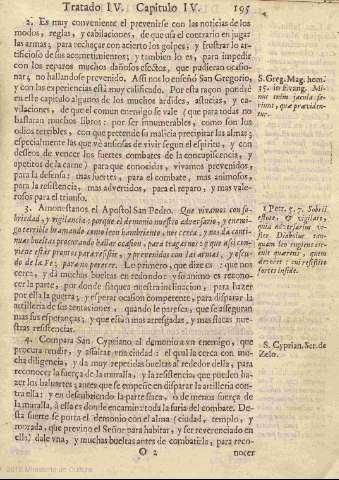 Tratado IV. Capitulo IV. 195
2. Es muy conveniente el prevenirse con las noticias de los
modos, reglas, y cabilaciones, de que usa el contrario en jugar
las armas; para rechaçar con acierto los golpes; y frustrar lo ar-
tificioso de sus acometimientos; y tambien lo es, para impedir
con los reparos muchos dañosos efectos, que pudieran ocasio-
nar, no hallandose prevenido. Assi nos lo enseñó San Gregorio,
y con las experiencias está muy calificado. Por esta razon pondré
en este capitulo algunos de los muchos ardides, astucias, y ca-
vilaciones, de que el comun enemigo se vale (que para todas no
bastaran muchos libros: por ser innumerables, como son los
odios terribles, con que pretende su malicia precipitar las almas;
especialmente las que vè ansiosas de vivir segun el espiritu, y con
deseos de vencer los fuertes combates de la concupiscencia, y
apetitos de la carne) para que conocidas, vivamos prevenidos,
para la defensa; mas fuertes, para el combate, mas animosos,
para la resistencia, mas advertidos, para el reparo, y mas vale-
rosos para el triunfo.
S. Greg. Mag. hom.
35. in Evang. Mi-
nus enim jacula fe-
riunt, quæ præviden-
tur.
3. Amonestanos el Apostol San Pedro. Que vivamos con so-
briedad, y vigilancia; porque el demonio nuestro adversario, y enemi-
go terrible bramando como leon hambriento, nos cerca, y nos da conti-
nuas bueltas procurando hallar ocasion, para tragarnos: y que assi con-
viene estar promptos para resistir, y prevenidos con las armas, y escu-
do de la Fè; para no perecer. Lo primero, que dize es: que nos
cerca, y dá muchas bueltas en redondo: y lo animo es recono-
cer la parte, por donde flaquea nuestra inclinacion, para hazer
por ella la guerra; y esperar ocasion competente, para disparar la
artilleria de sus tentaciones, quando le parece, que se asseguran
mas sus esperanças; y que están mas arresgadas, y mas flacas nues-
tras resistencias.
1 Petr. 5. 7. Sobrii
estote, & vigilate,
quia adversarius ves-
ter Diabolus tan-
quam leo rugiens cir-
cuit quærens, quem
devoret: cui resistite
fortes in fide.
4. Compara San Cypriano al demonio à un enemigo, que
procura rendir, y assaltar una ciudad: el qual la cerca con mu-
cha diligencia, y da muy repetidas bueltas al rededor della, para
reconocer la fuerça de la muralla, y la resistencia, que pueden ha-
zer los baluartes; antes que se empeñe en disparar la artilleria con-
tra ella; y en descubriendo la parte flaca, ò de menos fuerça de
la muralla, à ella es donde encamina toda la furia del combate. De-
sta suerte se porta el demonio con el alma (ciudad, templo, y
morada, que previno el Señor para habitar, y ser reverenciado en
ella) dale una, y muchas bueltas antes de combatirla, para reco-
S. Cyprian. Ser. de
Zelo.
O 2
nocer